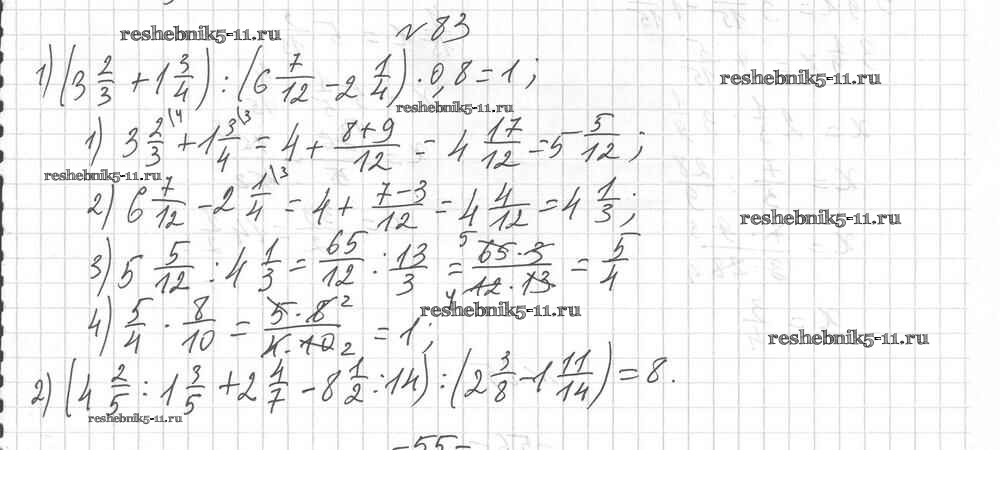 reshebnik5-11.ru
№ 83
1) (3 2/3 + 1 3/4) : (6 7/12 - 2 1/4) · 0,8 = 1;
reshebnik5-11.ru
reshebnik5-11.ru
1) 3 2/3 \4 + 1 3/4 \3 = 4 + (8+9)/12 = 4 17/12 = 5 5/12;
reshebnik5-11.ru
2) 6 7/12 - 2 1/4 \3 = 4 + (7-3)/12 = 4 4/12 = 4 1/3;
reshebnik5-11.ru
3) 5 5/12 : 4 1/3 = 65/12 : 13/3 = 5 (65·3)/(12·13) 4 = 5/4
reshebnik5-11.ru
4) 5/4 · 8/10 = (5·8 2)/(4·10 2) = 1;
reshebnik5-11.ru
2) (4 2/5 : 1 3/5 + 2 4/7 - 8 1/2 : 14) : (2 3/8 - 1 11/14) = 8.
reshebnik5-11.ru
-55-